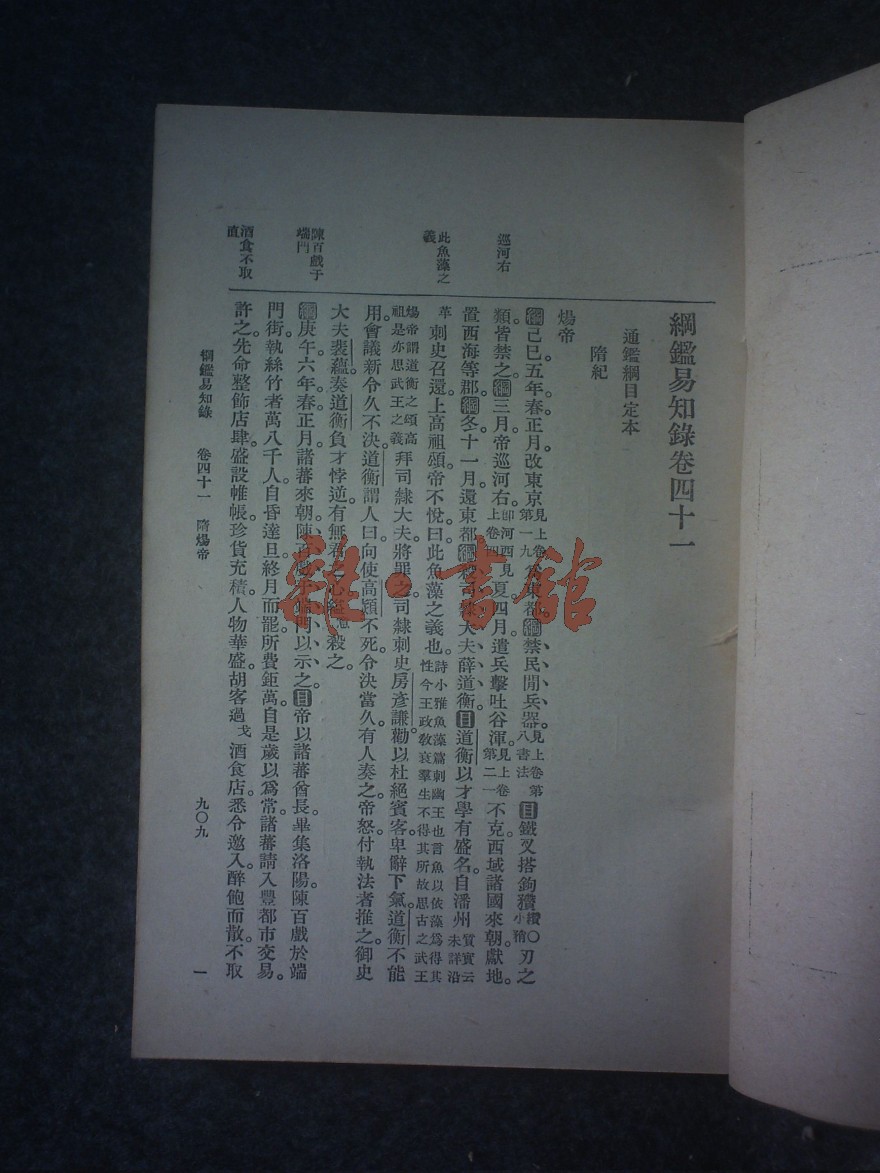 綱鑑易知錄卷四十一
通鑑綱目定本
隋紀
煬帝
綱己巳五年。春正月。改東京見上卷第一九爲東都。綱禁民閒兵器。見上卷第八書法目鐵叉搭鉤穳穳○小矟刃之
類。皆禁之。綱三月。帝巡河右。卽河西見上卷四夏四月。遣兵擊吐谷渾。見上卷第二一不克。西域諸國來朝。獻地。
置西海等郡。綱冬十一月。還東都。綱殺司隸大夫薛道衡。目道衡以才學有盛名。自潘州質實云潘州未詳沿
革刺史召還。上高祖頌。帝不悅曰。此魚藻之義也。詩小雅魚藻篇刺幽王也言魚以依藻爲得其性今王政敎衰羣生不得其所故思古之武王
煬帝謂道衡之頌高祖是亦思武王之義拜司隸大夫。將罪之。司隸刺史房彥謙勸以杜絕賓客。卑辭下氣。道衡不能
用。會議新令。久不決。道衡謂人曰。向使高熲不死。令決當久。有人奏之。帝怒。付執法者推之。御史
大夫裴蘊奏道衡負才悖逆。有無君之心。縊殺之。
綱庚午六年。春正月。諸蕃來朝。陳百戲于端門以示之。目帝以諸蕃酋長。畢集洛陽。陳百戲於端
門街。執絲竹者萬八千人。自昏達旦。終月而罷。所費鉅萬。自是歲以爲常。諸蕃請入豐都市交易。
許之。先命整飾店肆。盛設帷帳。珍貨充積。人物華盛。胡客過戈酒食店。悉令邀入。醉飽而散。不取
巡河右
此魚藻之義
陳百戲于端門
酒食不取直
綱鑑易知錄 卷四十一 隋煬帝
九〇九
一
雜·書館